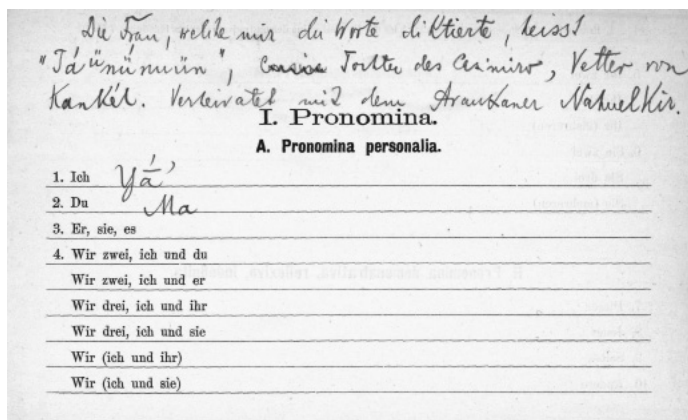 Die Frau, welche mir die Worte diktierte, heisst
"Táünúnuün", Tochter des Casimiro, Vetter von
Kankél. Verheiratet mit dem Araukaner Nahuelkir.
I. Pronomina.
A. Pronomina personalia.
1. Ich Yá'
2. Du Ma
3. Er, sie, es
4. Wir zwei, ich und du
Wir zwei, ich und er
Wir drei, ich und ihr
Wir drei, ich und sie
Wir (ich und ihr)
Wir (ich und sie)